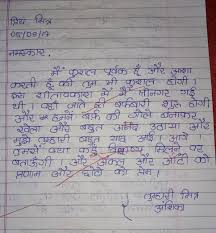 प्रिय मित्र
05/09/17
नमस्कार,
मैं कुशल पूर्वक हूँ और आशा
करती हूँ की तुम भी कुशल होगी।
इस शीतावकाश में मैं श्रीनगर गई
थी। वहाँ जाते ही बर्फबारी शुरू होगी
और हमने बर्फ के गोले बनाकर
खेला और बहुत आनंद उठाया और
मुझे तुम्हारी बहुत याद आई। आगे
तुमसे क्या कहूँ मिलने पर
बताऊँगी। और अंकल और आंटी को
प्रणाम और छोटे को प्रेम।
तुम्हारी मित्र
अंशिका